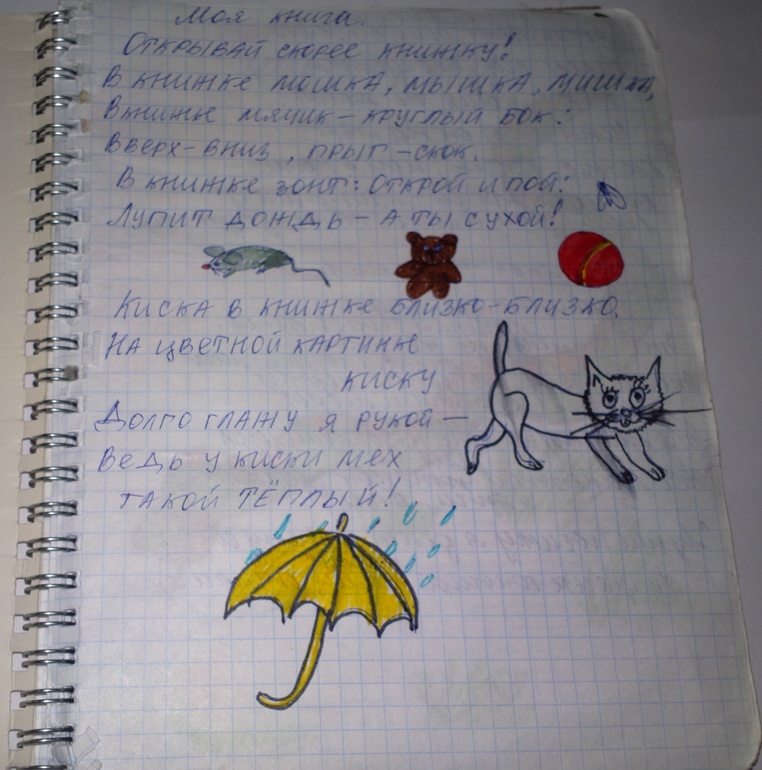 Моя книга.
Открывай скорее книжку!
В книжке мошка, мышка, мишка,
В книжке мячик - круглый бок:
Вверх-вниз, прыг-скок.
В книжке зонт: Открой и пой:
Лупит дождь - а ты сухой!
Киска в книжке близко-близко.
На цветной картинке
киску
Долго глажу я рукой —
Ведь у киски мех
такой тёплый!